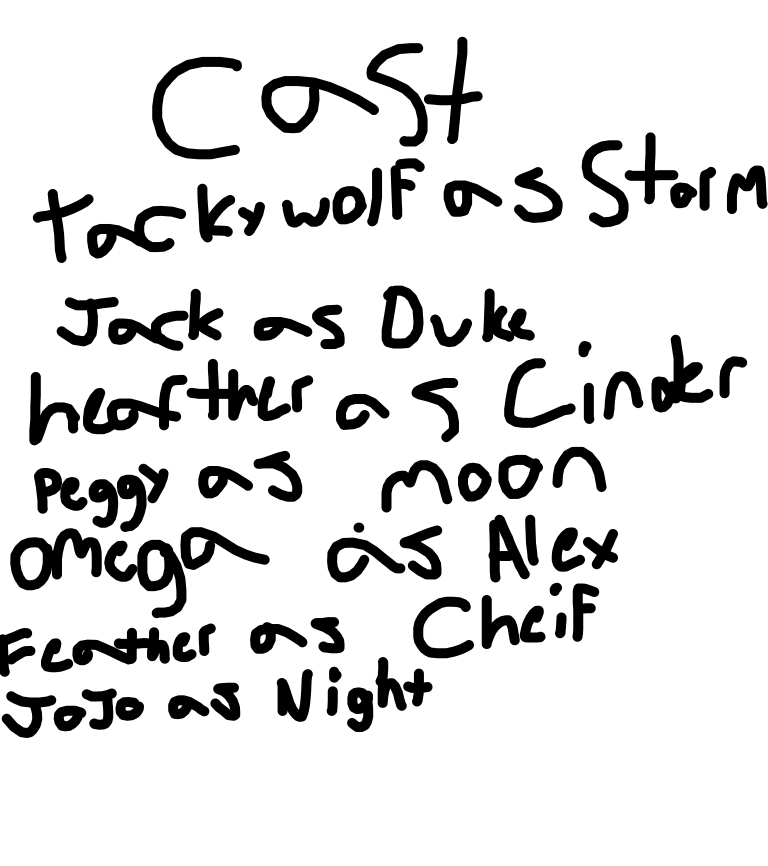 Cast
tackywolf as Storm
Jack as Duke
hearther as Cinder
Peggy as moon
omega as Alex
Feather as Cheif
JoJo as Night